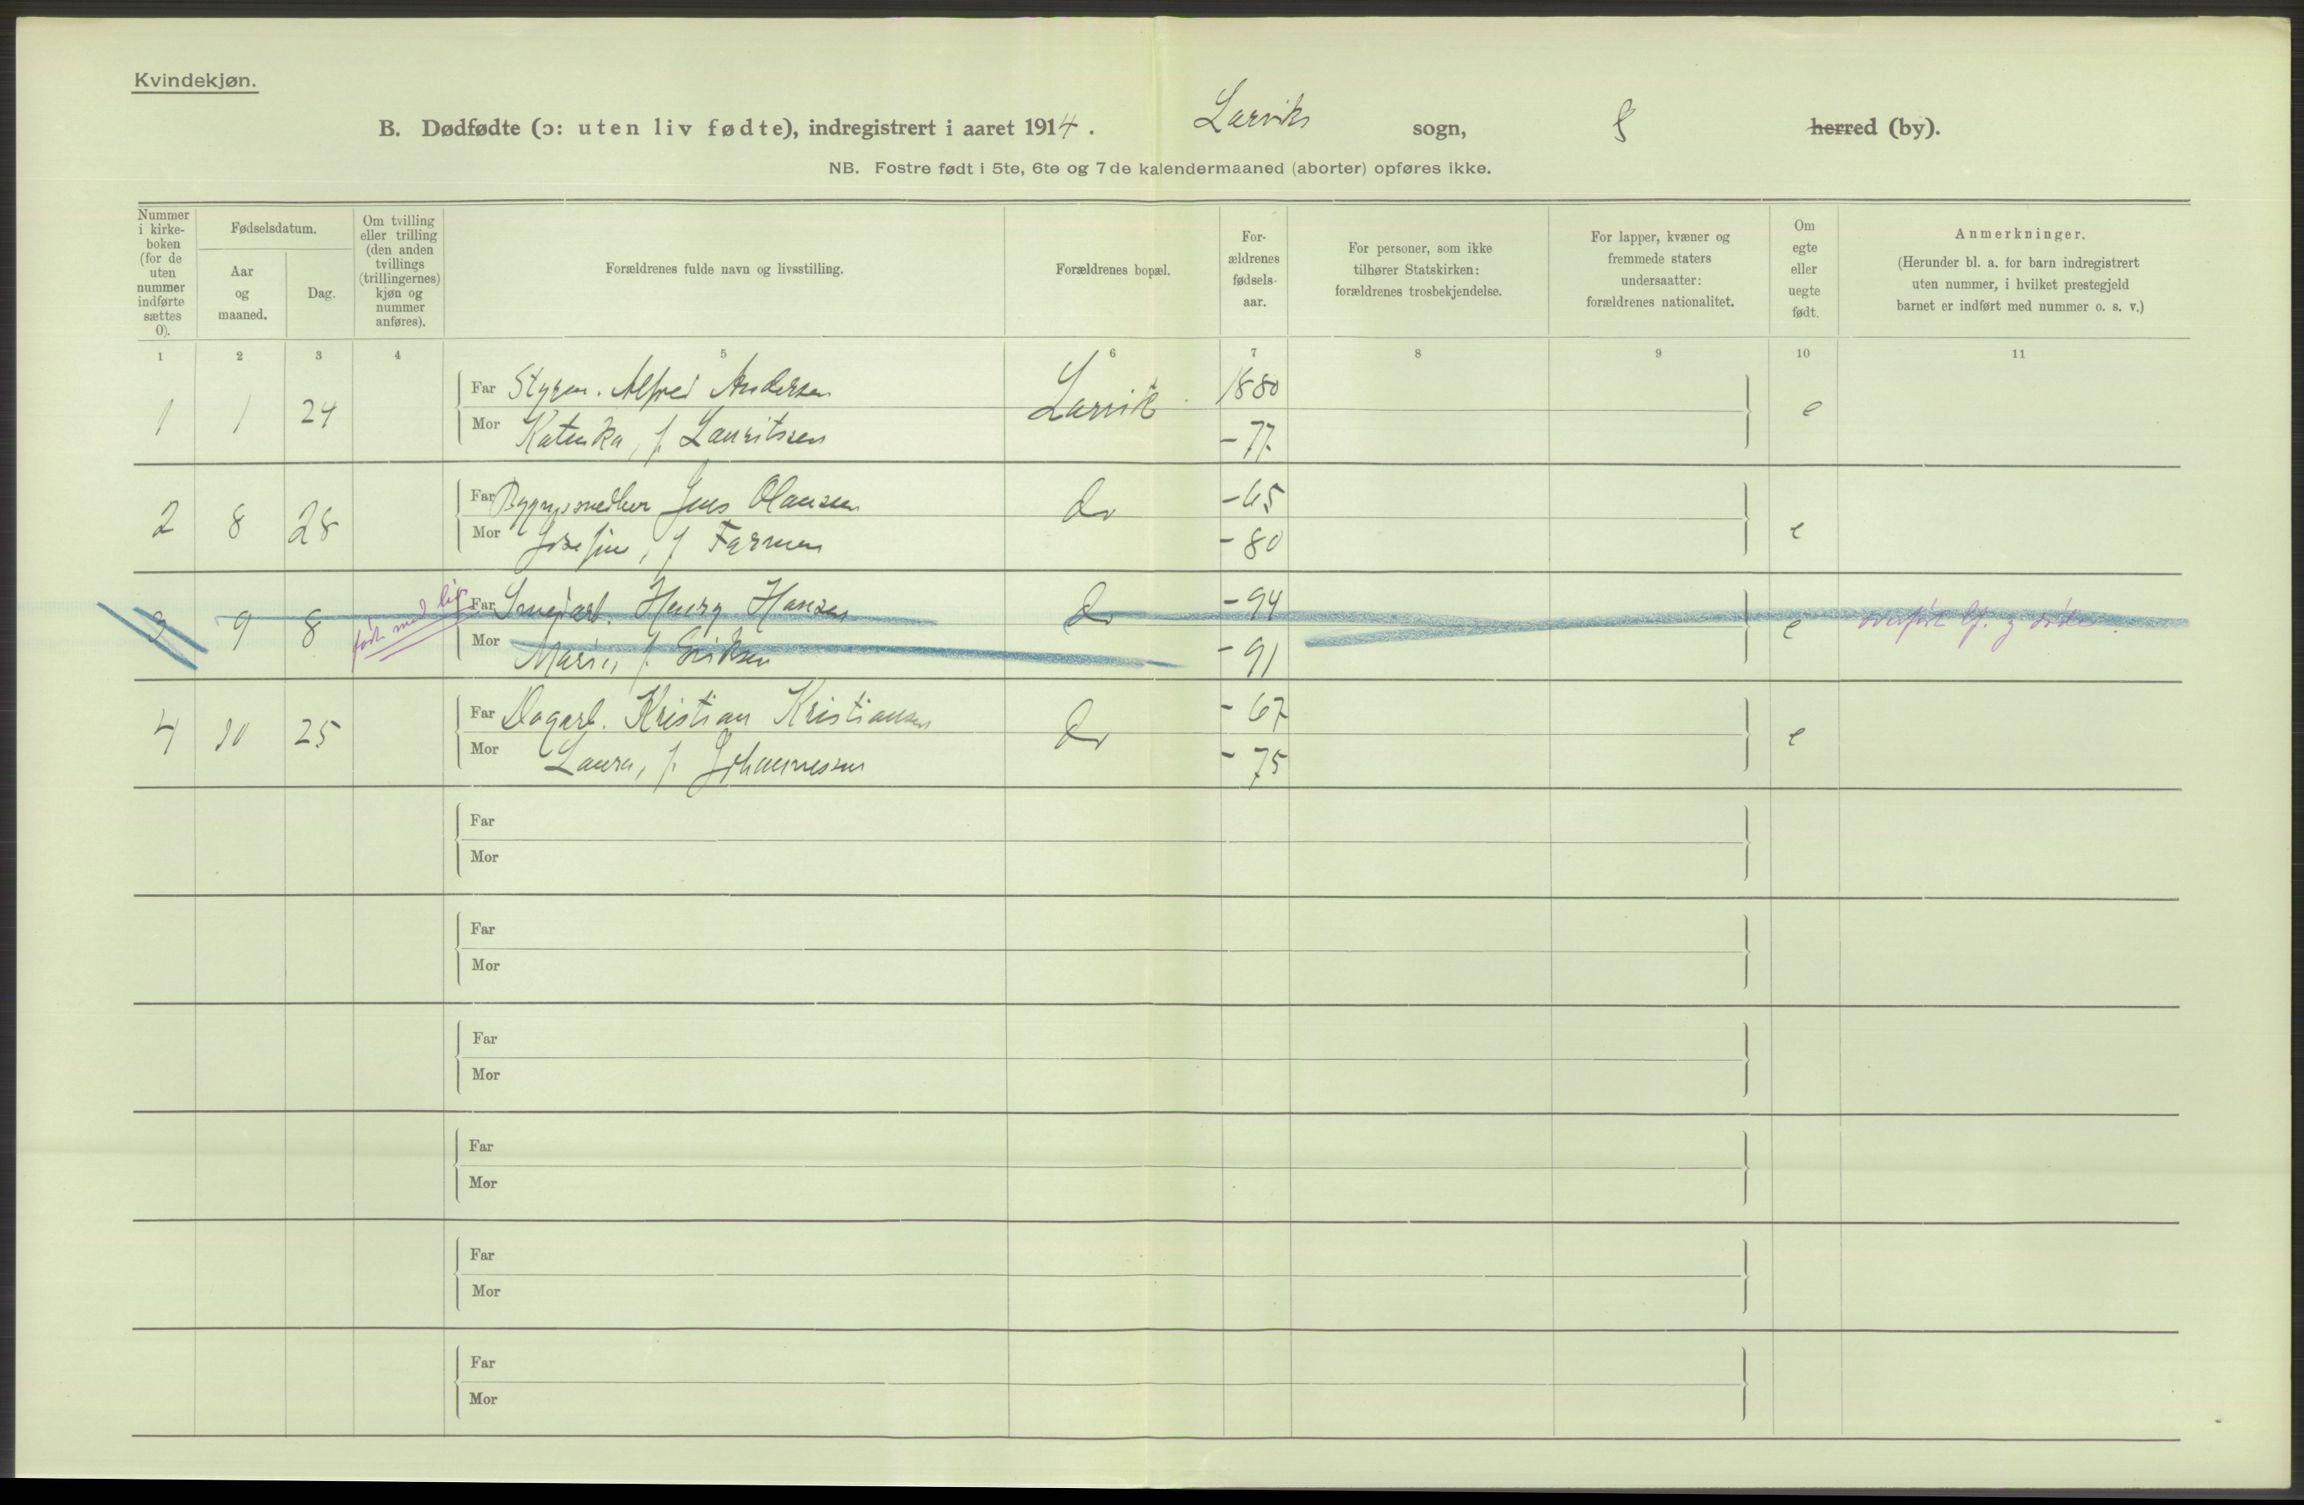 Kvindekjøn.
B. Dødfødte (ɔ: uten liv fødte), indregistrert i aaret 1914. Larviks sogn, herred (by).
NB. Fostre født i 5te, 6te og 7de kalendermaaned (aborter) opføres ikke.
Nummer i kirke-boken (for de uten nummer indførte sættes 0).
Fødselsdatum.
Aar og maaned.
Dag.
Om tvilling eller trilling (den anden tvillings (trillingernes) kjøn og nummer anføres).
Forældrenes fulde navn og livsstilling.
Forældrenes bopæl.
For-ældrenes fødsels-aar.
For personer, som ikke tilhører Statskirken: forældrenes trosbekjendelse.
For lapper, kvæner og fremmede staters undersaatter: forældrenes nationalitet.
Om egte eller uegte født.
Anmerkninger.
(Herunder bl. a. for barn indregistrert uten nummer, i hvilket prestegjeld barnet er indført med nummer o. s. v.)
1 2 3 4 5 6 7 8 9 10 11
1 1 24 Far Styrm. Alfred Andersen Larvik 1880 e
Mor Katinka, f. Lauritsen - 77
2 8 28 Far Jens Olausen do - 65 e
Mor Josefine, f. Farmen - 80
3 9 8 født med liv Far Henry Hansen do - 94 e overført
Mor Marie, f. Eriksen - 91
4 10 25 Far Dagarb. Kristian Kristiansen do - 67 e
Mor Laura, f. Johannessen - 75
Far
Mor
Far
Mor
Far
Mor
Far
Mor
Far
Mor
Far
Mor